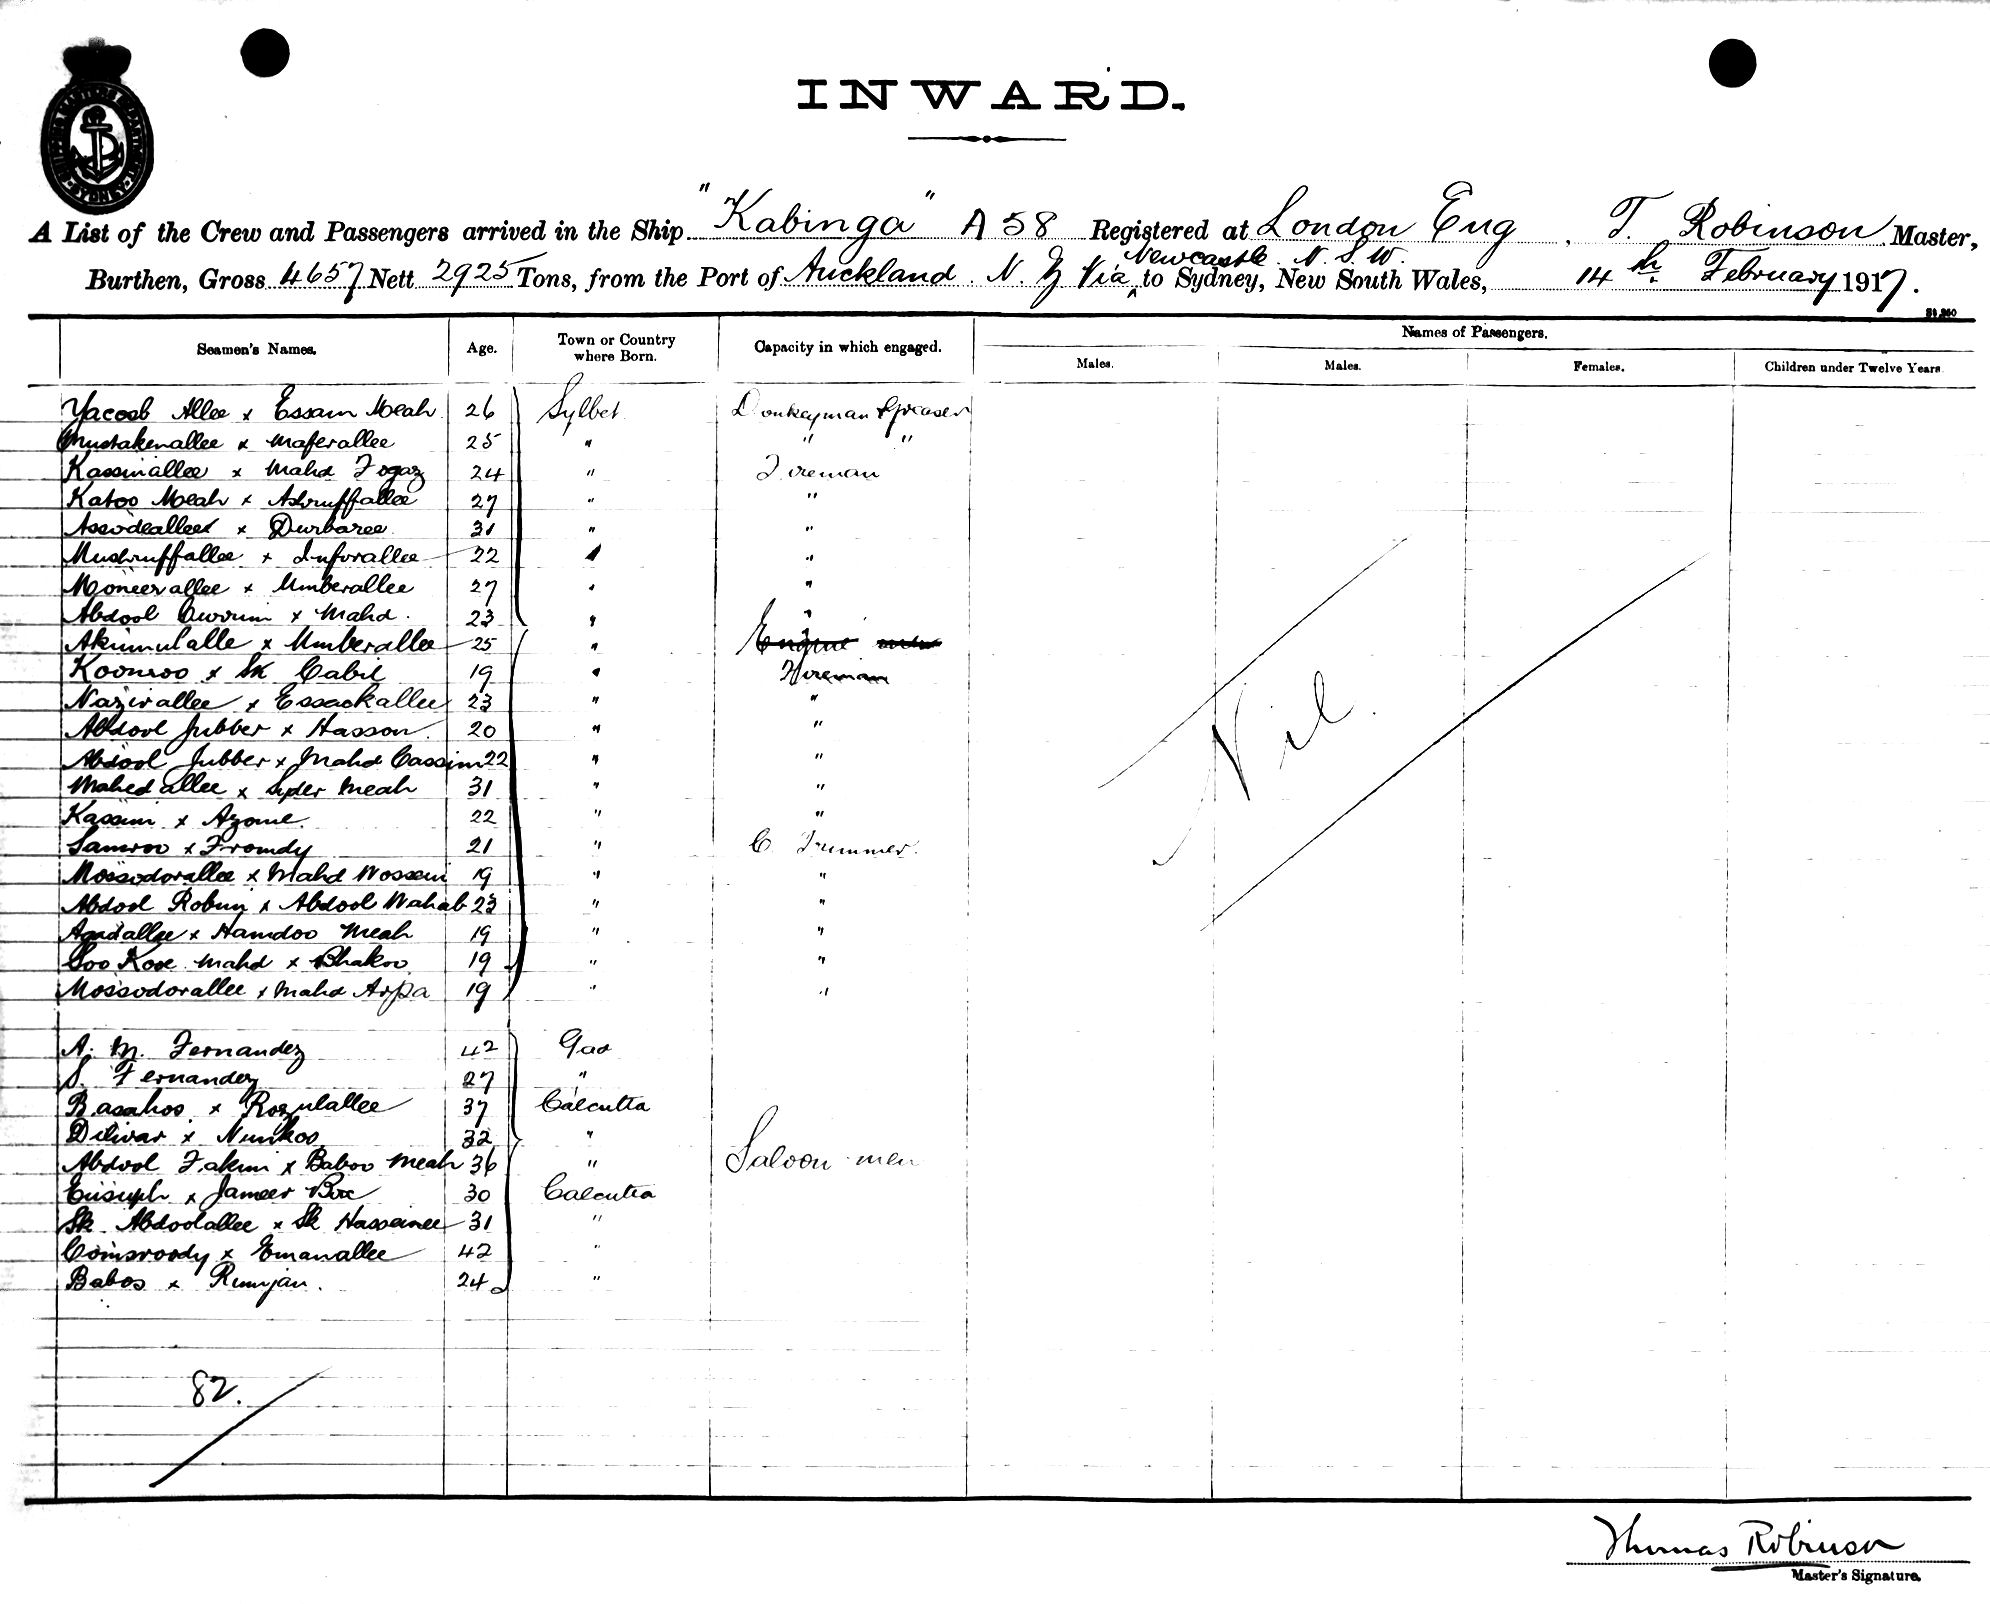 INWARD.
A List of the Crew and Passengers arrived in the Ship "Kabinga" A 58 Registered at London Eng. T. Robinson Master,
Burthen, Gross 4657 Nett 2925 Tons, from the Port of Auckland. N. Z Via Newcastle N. S. W. to Sydney, New South Wales, 14th February 1917.
Seamen's Names. Age. Town or Country where Born. Capacity in which engaged. Names of Passengers.
Males. Males. Females. Children under Twelve Years.
Yacoob Allee x Essam Meah 26 Sylhet Donkeyman & Greaser
Mustakenallee x Maferallee 25 " " "
Kassimallee x Mahd Fogaz 24 " Fireman
Katoo Meah x Ashruffallee 27 " "
x Durbaree 31 " "
Mushruffallee x 22 " "
Moneerallee x Umberallee 27 " "
Abdool Currim x Mahd. 23 " "
Akimulalle x Umberallee 25 " Engine men
Koonroo x Sk Cabil 19 " Fireman
Nazirallee x Essackallee 23 " "
Abdool Jubber x Hasson 20 " "
Abdool Jubber x Mahd Cassim 22 " "
Mahed allee x Syder Meah 31 " "
Kassim x Azome. 22 " "
Samroo x Fromdy 21 " C. Trimmer.
Mossodorallee x Mahd Wossein 19 " "
Abdool Robim x Abdool Wahab 23 " "
Asadallee x Hamdoo Meah 19 " "
Mahd x Bhakoo 19 " "
Mossodorallee x Mahd Arpa 19 " "
A. M. Fernandez 42 Goa
S. Fernandez 27 "
Basahoo x Rozulallee 37 Calcutta
Dilwar x Nunkoo 32 "
Abdool Fakim x Baboo Meah 36 " Saloon men
Eusuph x Jameer Box 30 Calcutta
Sk Abdoolallee x Sk Hassainee 31 "
Comsroody x Emanallee 42 "
Baboo x Rumjan. 24 "
Nil.
82.
Thomas Robinson
Master's Signature.